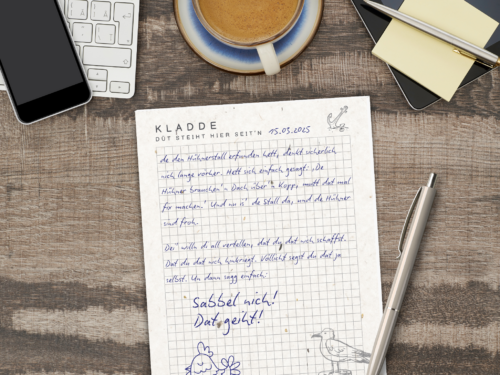 KLADDE
DÜT STEIHT HIER SEIT'N 15.03.2025
de den Hühnerstall erfunden hett, denkt sicherlich
nich lange vorher. Hett sich einfach gesagt: „De
Hühner brauchen'n Dach über'n Kopp, mutt dat mal
fix machen." Und nu is' de Stall da, und de Hühner
sind froh.
Dei willn di all vertellen, dat du dat nich schaffst.
Dat du dat nich henkriegt. Völlicht segst du dat ja
selbst. Un dann sagg einfach:
sabbel nich!
Dat geiht!